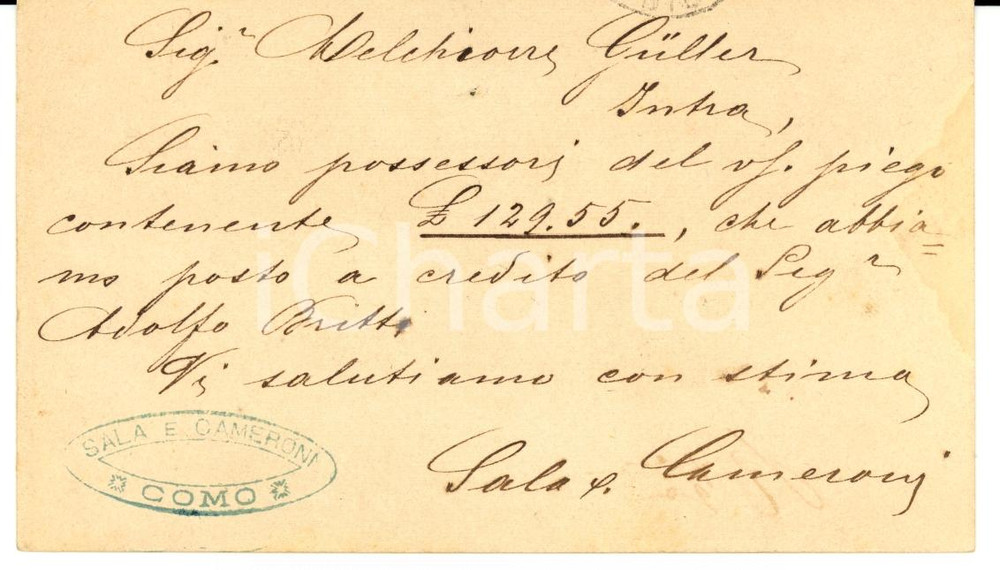 Sig.r Melchiorre Güller
Intra,
Siamo possessori del vs. piego
contenente £ 129.55., che abbia=
mo posto a credito del Sigr
Adolfo
Vi salutiamo con stima
Sala e Cameroni
SALA E CAMERONI
COMO
iCharta